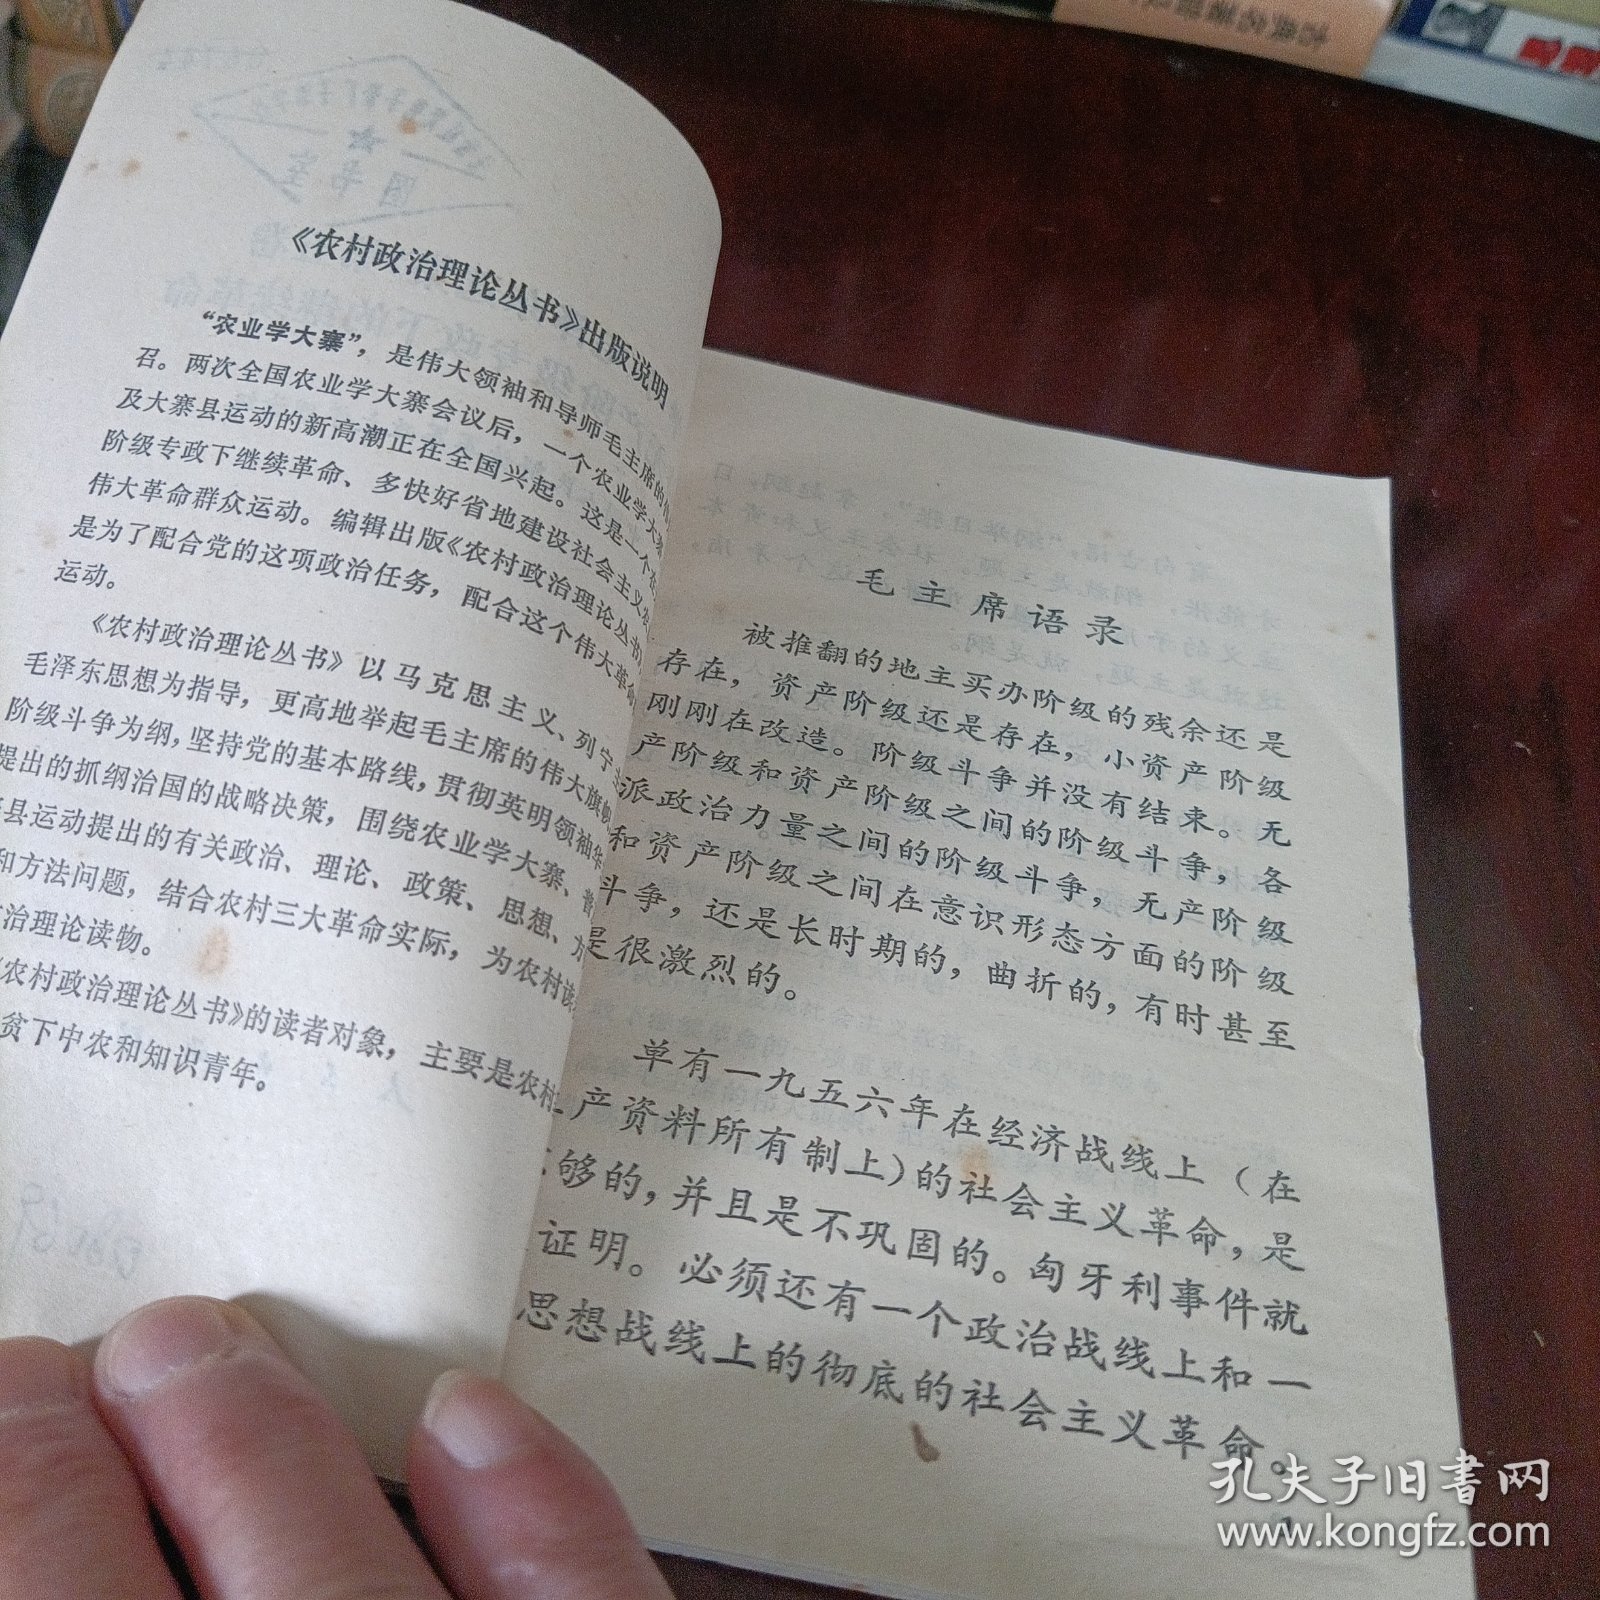 《农村政治理论丛书》出版说明
“农业学大寨”，是伟大领袖和导师毛主席的
召。两次全国农业学大寨会议后，一个农业学大寨
及大寨县运动的新高潮正在全国兴起。这是一个在
阶级专政下继续革命、多快好省地建设社会主义农
伟大革命群众运动。编辑出版《农村政治理论丛书》
是为了配合党的这项政治任务，配合这个伟大革命
运动。
《农村政治理论丛书》以马克思主义、列宁
毛泽东思想为指导，更高地举起毛主席的伟大旗帜
阶级斗争为纲，坚持党的基本路线，贯彻英明领袖华
提出的抓纲治国的战略决策，围绕农业学大寨、普
县运动提出的有关政治、理论、政策、思想、方
和方法问题，结合农村三大革命实际，为农村读
治理论读物。
农村政治理论丛书》的读者对象，主要是农村
贫下中农和知识青年。
毛主席语录
被推翻的地主买办阶级的残余还是
存在，资产阶级还是存在，小资产阶级
刚刚在改造。阶级斗争并没有结束。无
产阶级和资产阶级之间的阶级斗争，各
派政治力量之间的阶级斗争，无产阶级
和资产阶级之间在意识形态方面的阶级
斗争，还是长时期的，曲折的，有时甚至
是很激烈的。
单有一九五六年在经济战线上（在
产资料所有制上）的社会主义革命，是
够的，并且是不巩固的。匈牙利事件就
证明。必须还有一个政治战线上和一
思想战线上的彻底的社会主义革命。
孔夫子旧书网
www.kongfz.com